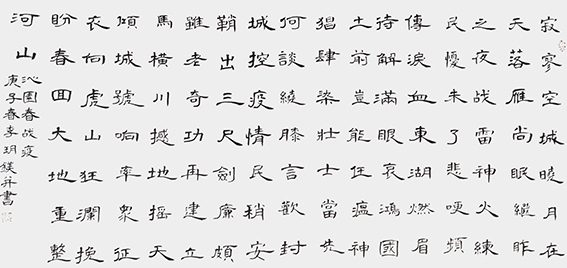 寂寥空城曉月在
天落雁尚眠繼昨
之夜战雷神火練
民憂未了悲哽頻
傳淚血東湖燃眉
待解滿眼哀鴻國
土前豈能任瘟神
猖肆染壯士當先
何談繞膝言歡封
城控疫情民稍安
鞘出三尺劍廉頗
雖老奇功再建立
馬橫川撼地摇天
傾城號响率眾征
衣向虎山狂瀾挽
盼春回大地重整
河山
沁園春战疫
庚子春李玥鎂并書